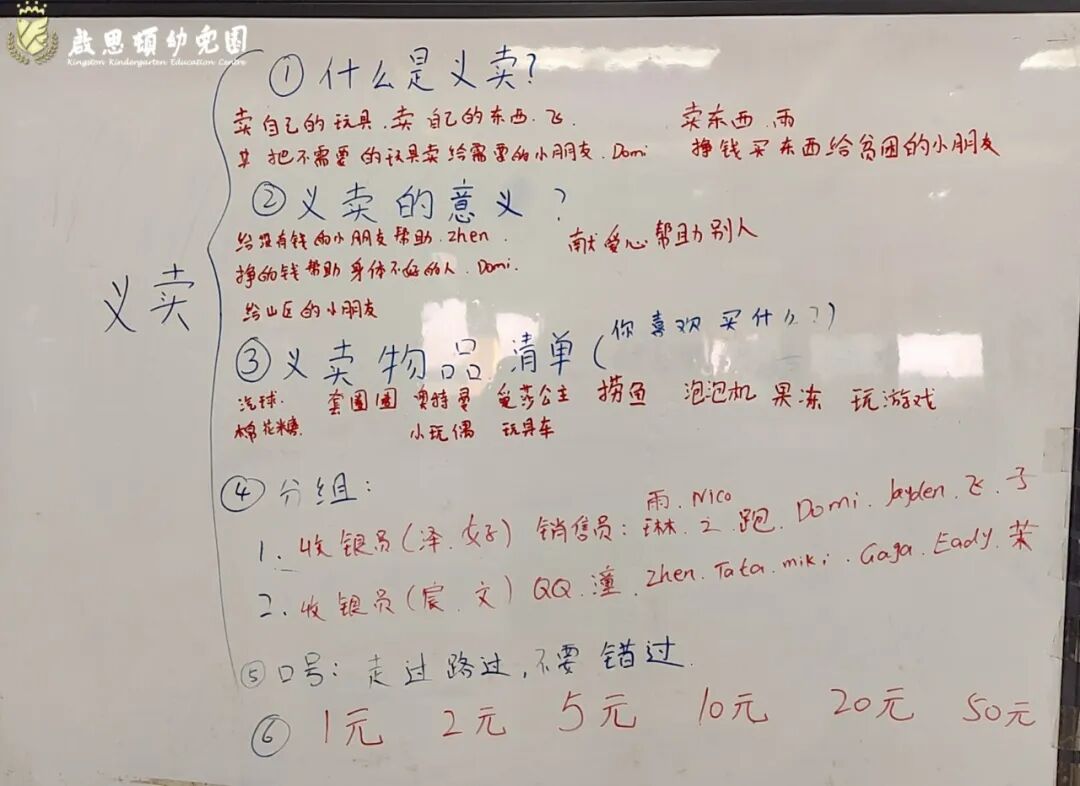 啟思頓幼兒園
Kingston Kindergarten Education Centre
义卖
① 什么是义卖?
卖自己的玩具、卖自己的东西.飞. 卖东西.雨
把不需要的玩具卖给需要的小朋友.Domi 挣钱买东西给贫困的小朋友
② 义卖的意义?
给没有钱的小朋友帮助.Zhen. 献爱心帮助别人
挣的钱帮助身体不好的人.Domi.
给山区的小朋友
③ 义卖物品清单(你喜欢买什么?)
汽球. 套圈圈 奥特曼 爱莎公主 捞鱼 泡泡机 果冻 玩游戏
棉花糖. 小玩偶 玩具车
④ 分组:
雨.Nico
1. 收银员(泽.好) 销售员:琳.之.跑.Domi.Jayden.飞.子
2. 收银员(宸.文) QQ.潼.Zhen.Tata.miki.Gaga.Eady.茉
⑤ 口号:走过路过,不要错过.
⑥ 1元 2元 5元 10元 20元 50元